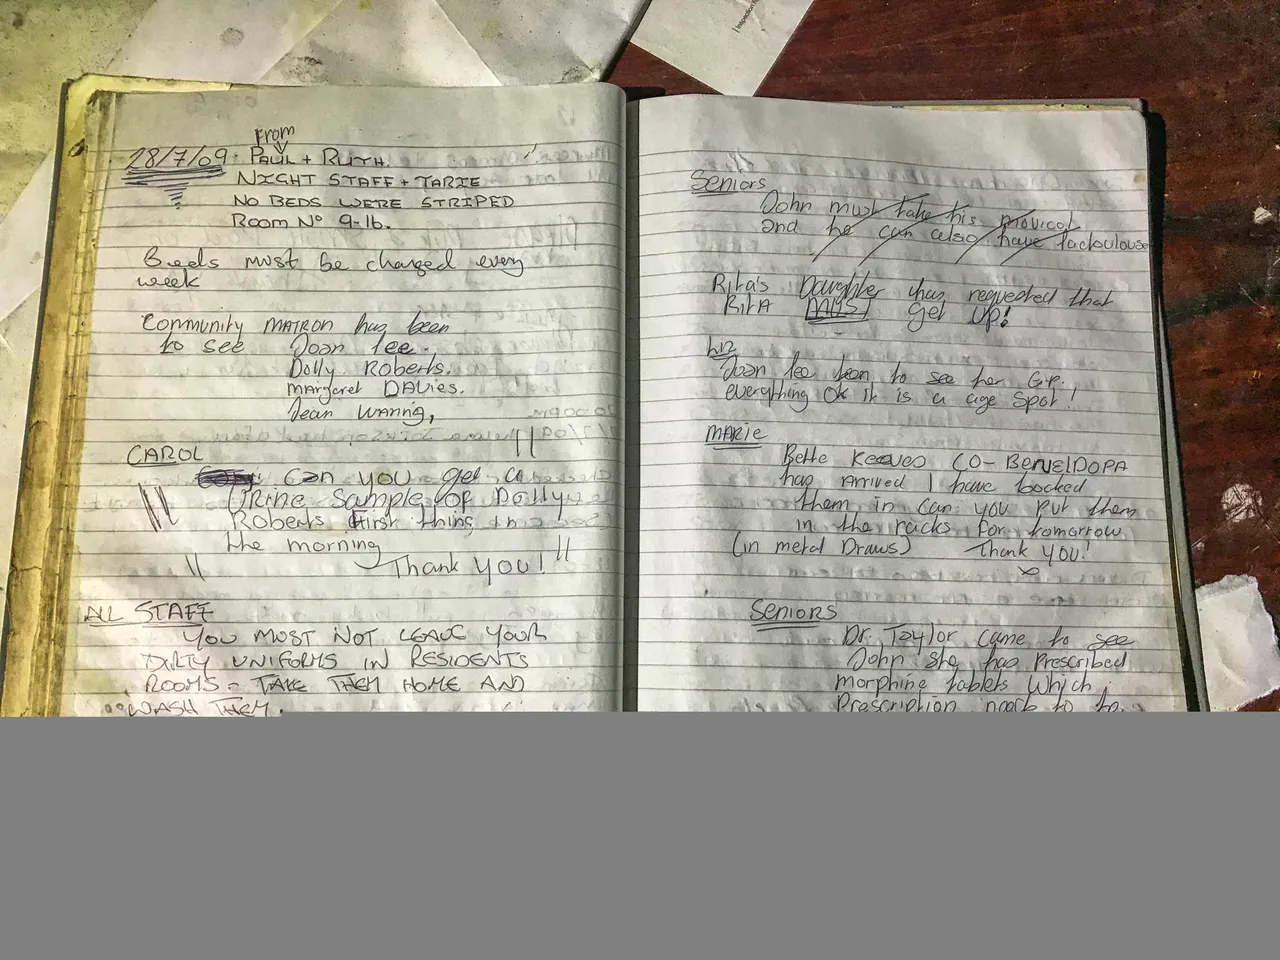 From
28/7/09. PAUL + RUTH.
NIGHT STAFF + TARIE
NO BEDS WERE STRIPED
ROOM Nº 9-16.
Beds must be changed every
week
Community MATRON has been
to see Joan Lee.
Dolly Roberts.
Margaret DAVies.
Jean WARing,
CAROL
Can you get a
Urine Sample of Dolly
Roberts First thing in
the morning
Thank YOU!
ALL STAFF
YOU MUST NOT LEAVE YOUR
DIRTY UNIFORMS IN RESIDENTS
ROOMS - TAKE THEM HOME AND
WASH THEM.
Seniors
John must take this movicol
and he can also have lactoulouse
Rita's Daughter has requested that
RitA MUST get UP!
Liz
Joan lee been to see her G.P.
everything OK it is a age Spot!
MARie
Bette Keeves CO-BeNelDOPA
has arrived I have booked
them in can you put them
in the racks for tomorrow
(in metal Draws) Thank YOU!
SENiORS
Dr. Taylor came to see
John she has Prescribed
morphine tablets which
Prescription needs to be